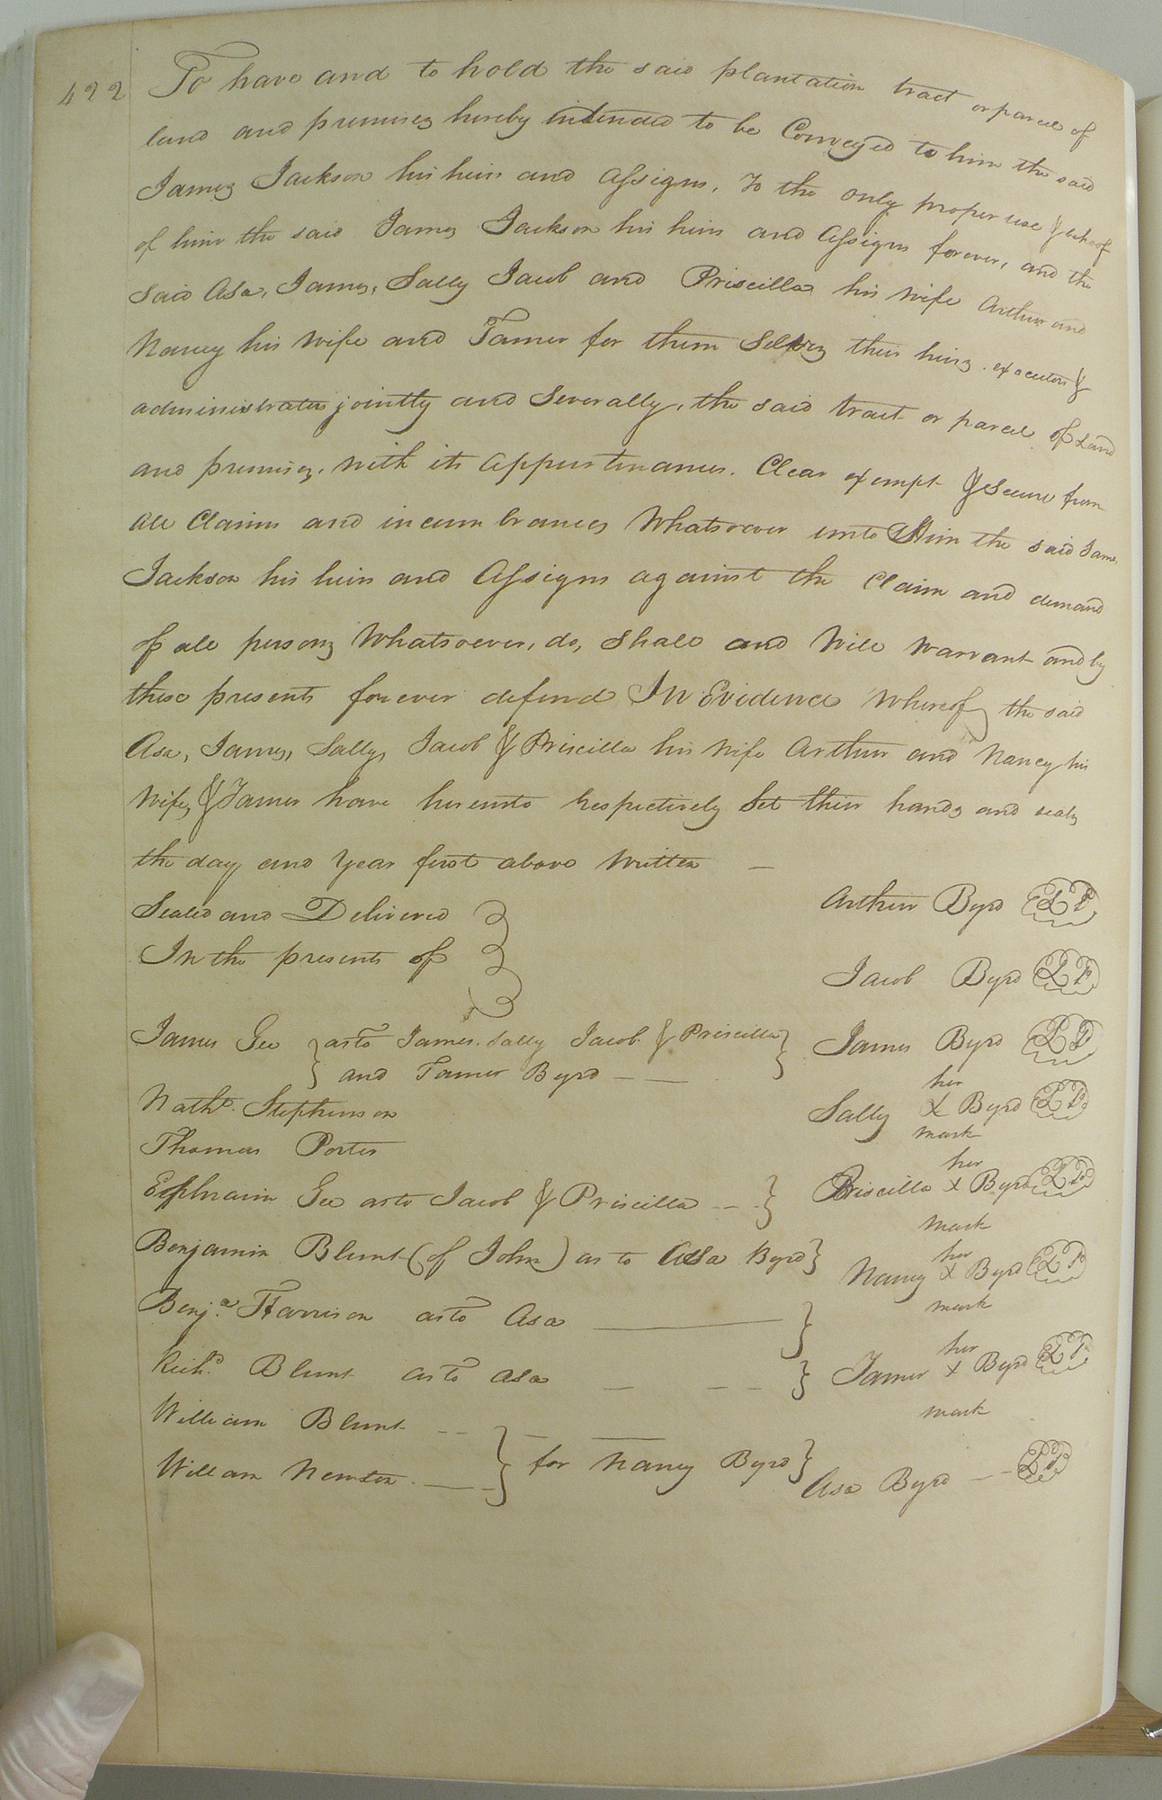 422
To have and to hold the said plantation tract or parcel of
land and premises hereby intended to be Conveyed to him the said
James Jackson his heirs and assigns, to the only proper use & behoof
of him the said James Jackson his heirs and assigns forever, and the
said Asa, James, Sally Jacob and Priscilla his wife Arthur and
Nancy his wife and Tamer for them Selves their heirs. executors &
administrators jointly and Severally, the said tract or parcel of Land
and premises, with its appurtenances. Clear exempt & secure from
all Claims and incumbrances Whatsoever unto Him the said James
Jackson his heirs and assigns against the Claim and demand
of all persons Whatsoever, do, shall and Will warrant and by
these presents forever defend In Evidence Whereof the said
Asa, James, Sally, Jacob & Priscilla his wife Arthur and Nancy his
Wife, & Tamer have hereunto respectively Set their hands and seals
the day and Year first above Written —
Sealed and Delivered
In the presents of
Arthur Byrd LS
Jacob Byrd LS
James Gee } as to James. Sally Jacob. & Priscilla }
and Tamer Byrd — —
James Byrd LS
Nathl. Stephenson
her
Sally X Byrd LS
mark
Thomas Porter
Ephraim Gee as to Jacob & Priscilla — - }
her
Priscilla X Byrd LS
mark
Benjamin Blunt (of John) as to Asa Byrd }
her
Nancy X Byrd LS
mark
Benja. Harrison as to Asa — }
Richd. Blunt as to Asa — - - }
her
Tamer X Byrd LS
mark
William Blunt - - } - —
William Newton. — - } for Nancy Byrd }
Asa Byrd — - LS